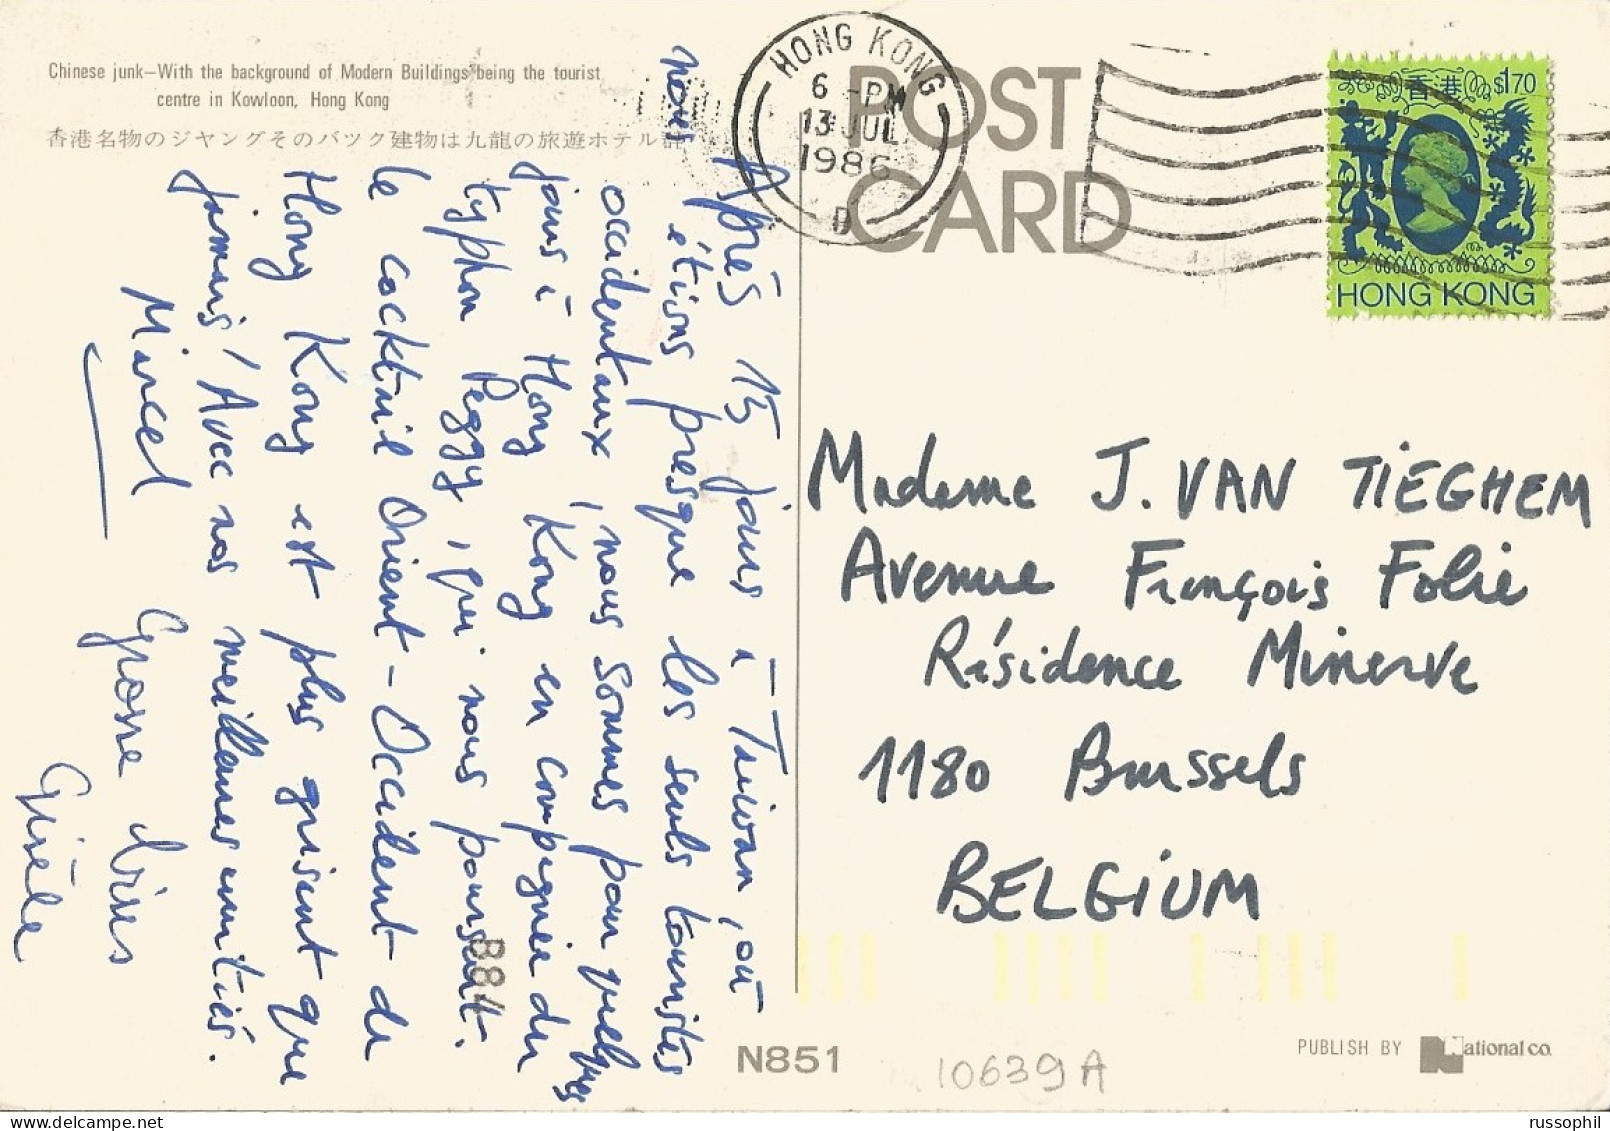 Chinese junk—With the background of Modern Buildings being the tourist
centre in Kowloon, Hong Kong
香港名物のジヤングそのバツク建物は九龍の旅遊ホテル群
POST
CARD
HONG KONG
6 -PM
13 JUL
1986
D
香港 $1.70
HONG KONG
Après 15 jours à Taiwan, où
nous étions presque les seuls touristes
occidentaux, nous sommes pour quelques
jours à Hong Kong en compagnie du
typhon Peggy, qui nous poursuit.
le cocktail Orient-Occident de
Hong Kong est plus grisant que
jamais! Avec nos meilleures amitiés.
Marcel
Grosse bises
Gisèle
Madame J. VAN TIEGHEM
Avenue François Folie
Résidence Minerve
1180 Brussels
BELGIUM
B84
N851
10639A
PUBLISH BY National co.
russophil